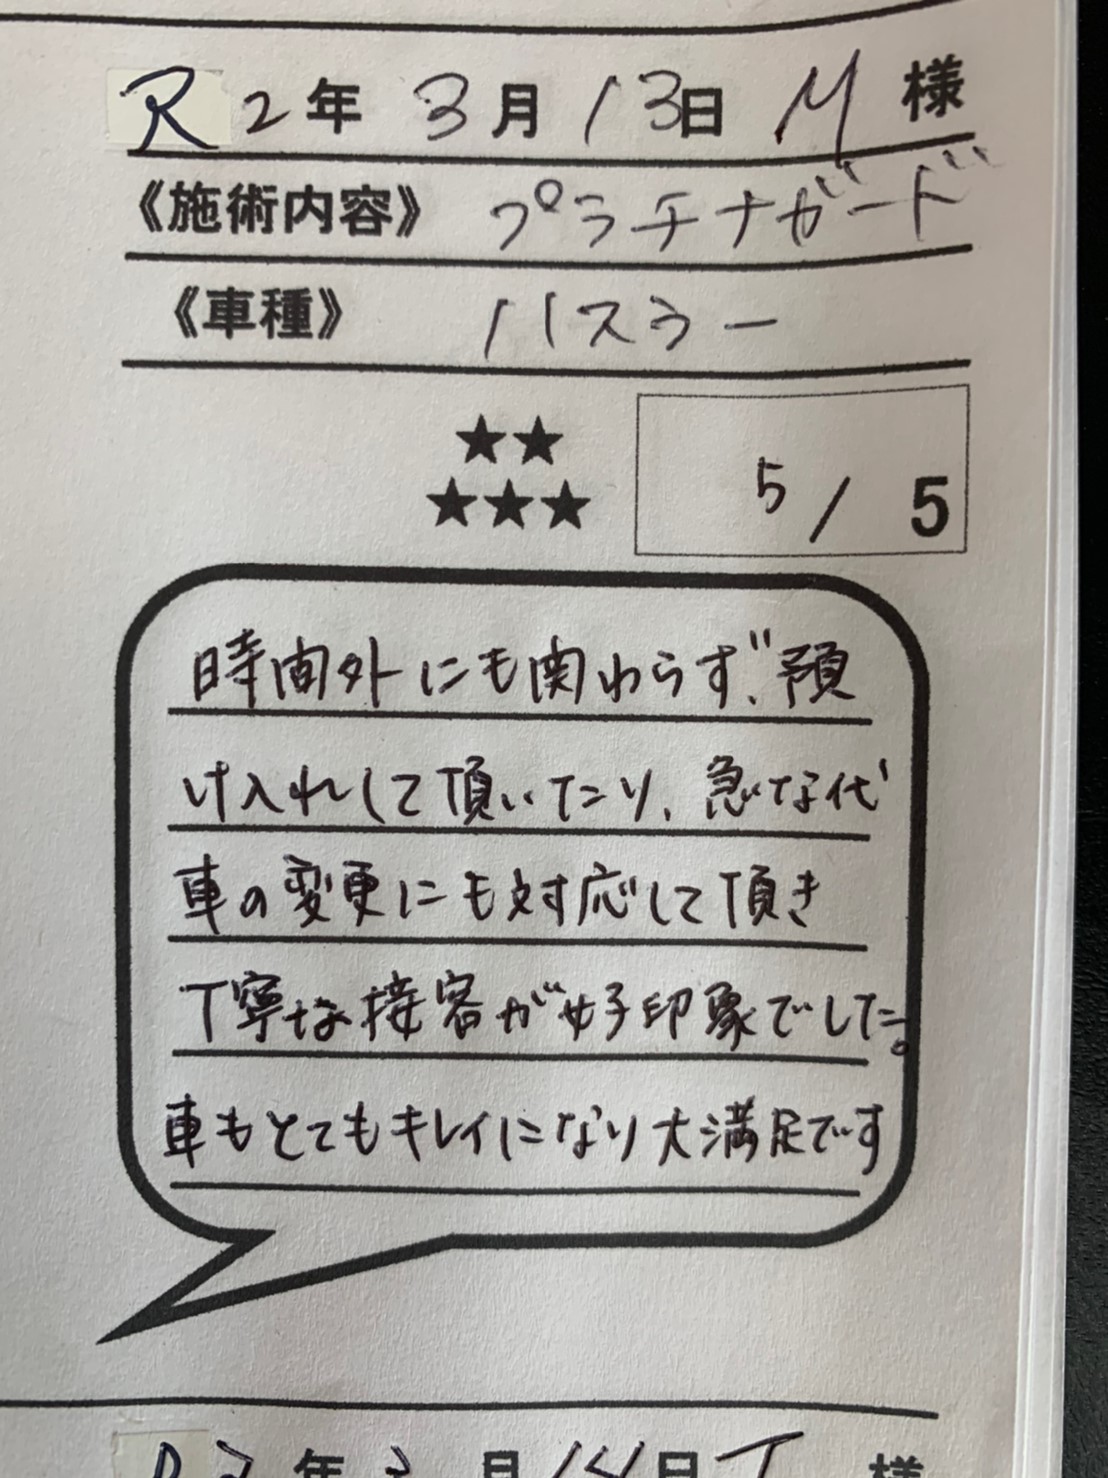 R2年 3月 13日 M 様
《施術内容》 プラチナガード
《車種》 ハスラー
★★
★★★
5 / 5
時間外にも関わらず、預
け入れして頂いたり、急な代
車の変更にも対応して頂き
丁寧な接客が好印象でした。
車もとてもキレイになり大満足です
R2年 3月 14日 T 様